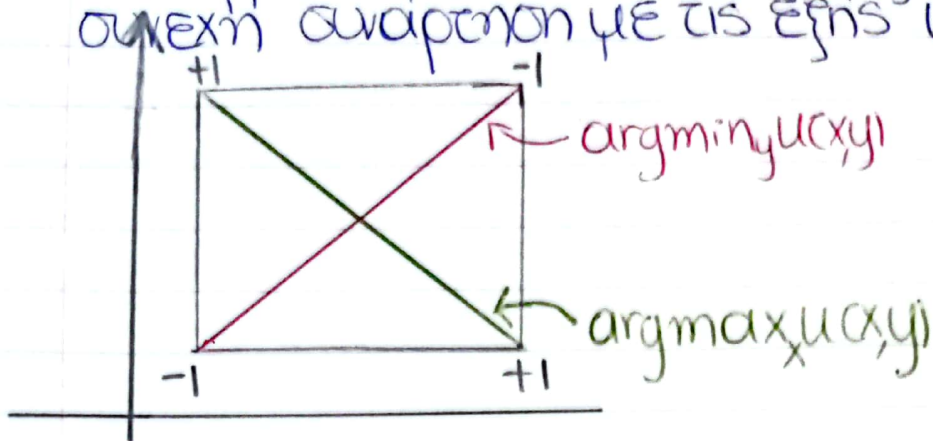 συνεχή συνάρτηση με τις εξής
+1 -1
argmin_y u(x,y)
argmax_x u(x,y)
-1 +1